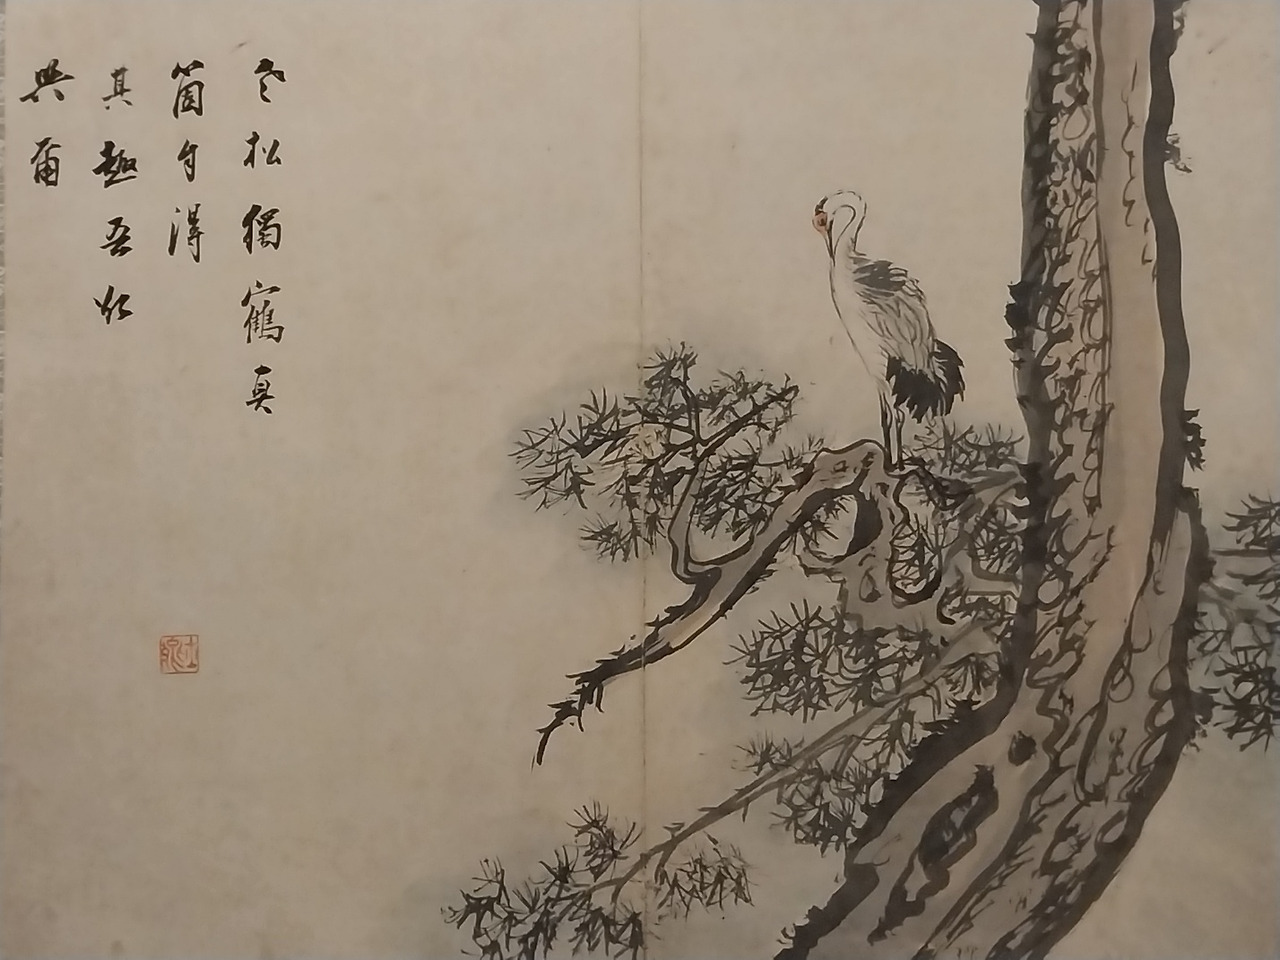 老松獨鶴真
箇自得
其趣吾
與爾